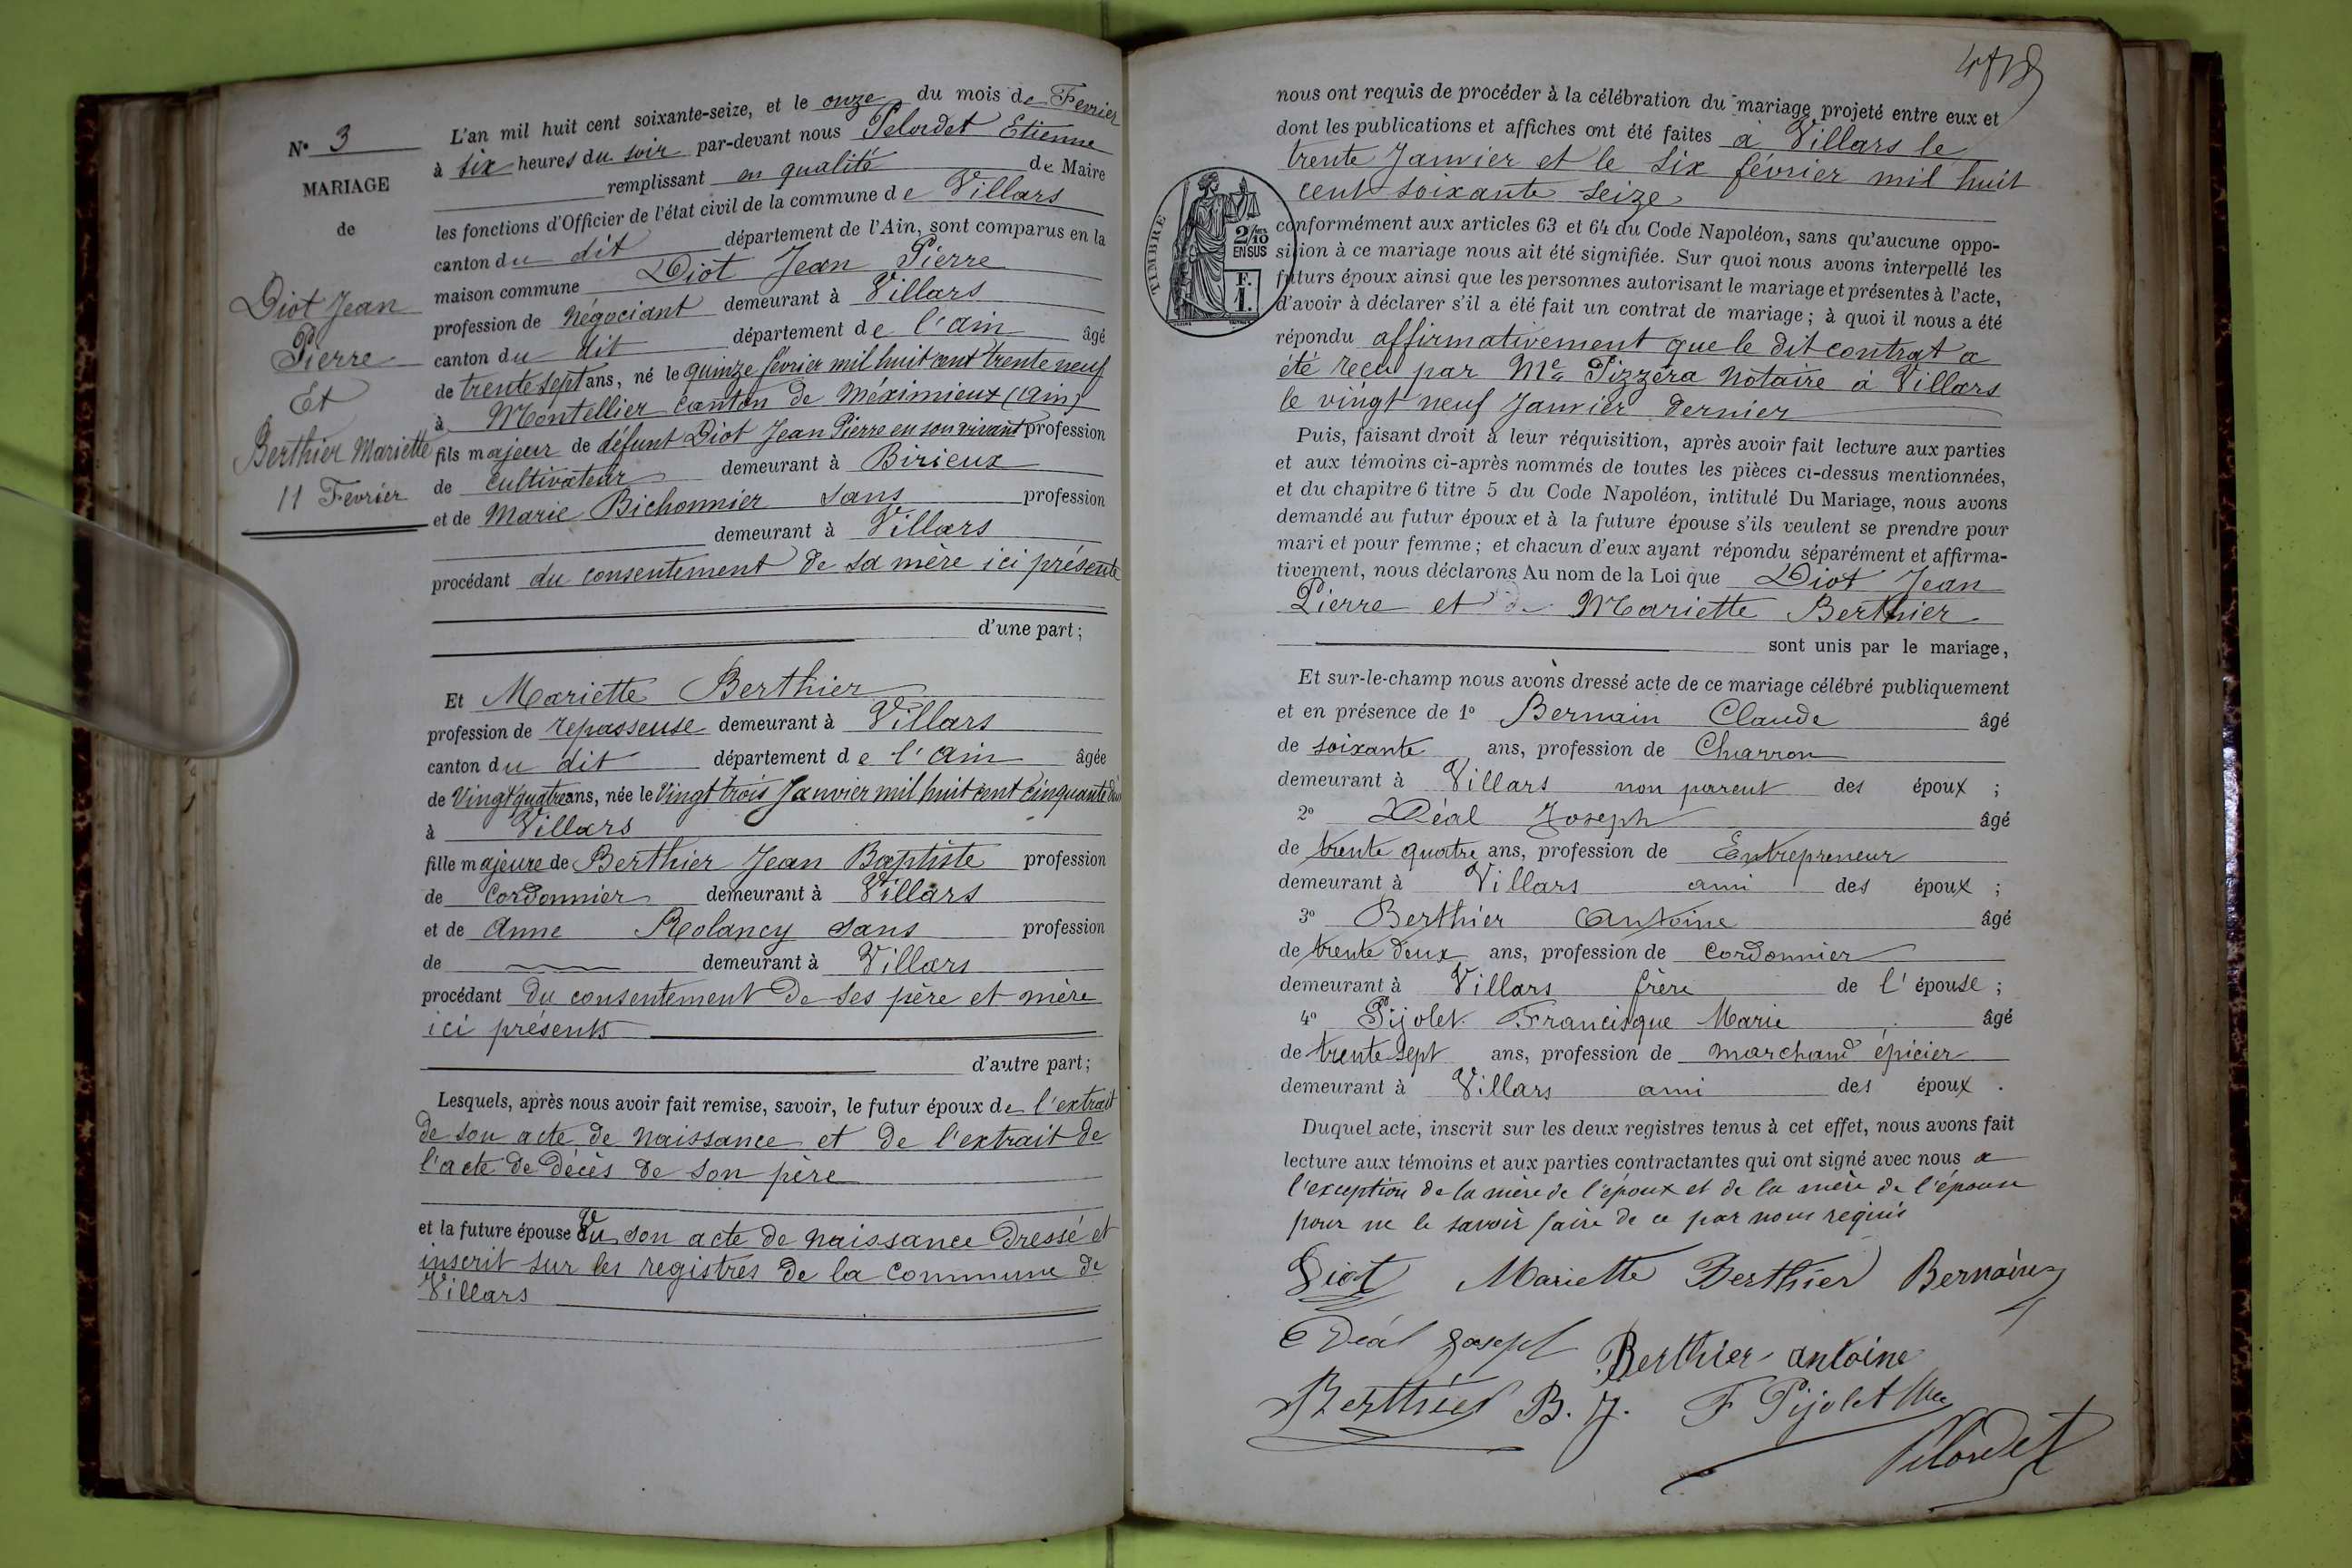 N° 3
MARIAGE
de
Diot Jean
Pierre
Et
Berthier Mariette
11 Février
L'an mil huit cent soixante-seize, et le onze du mois de Fevrier
à six heures du soir par-devant nous Pelordet Etienne
remplissant en qualité de Maire
les fonctions d'Officier de l'état civil de la commune de Villars
canton du dit département de l'Ain, sont comparus en la
maison commune Diot Jean Pierre
profession de Négociant demeurant à Villars
canton du dit département de l'Ain âgé
de trente sept ans, né le quinze février mil huit cent trente neuf
à Montellier canton de Méximieux (Ain)
fils majeur de défunt Diot Jean Pierre en son vivant profession
de cultivateur demeurant à Birieux
et de Marie Bichonnier sans profession
demeurant à Villars
procédant du consentement de sa mère ici présente
d'une part;
Et Mariette Berthier
profession de repasseuse demeurant à Villars
canton du dit département de l'Ain âgée
de Vingt quatre ans, née le Vingt trois Janvier mil huit cent cinquante deux
à Villars
fille majeure de Berthier Jean Baptiste profession
de Cordonnier demeurant à Villars
et de Anne Rolancy sans profession
de demeurant à Villars
procédant du consentement de ses père et mère
ici présents
d'autre part;
Lesquels, après nous avoir fait remise, savoir, le futur époux de l'extrait
de son acte de Naissance et de l'extrait de
l'acte de décès de son père
et la future épouse Vu son acte de naissance dressé et
inscrit sur les registres de la commune de
Villars
nous ont requis de procéder à la célébration du mariage projeté entre eux et
dont les publications et affiches ont été faites à Villars le
trente Janvier et le six février mil huit
cent soixante seize
TIMBRE
2/10
EN SUS
F.
1.
conformément aux articles 63 et 64 du Code Napoléon, sans qu'aucune oppo-
sition à ce mariage nous ait été signifiée. Sur quoi nous avons interpellé les
futurs époux ainsi que les personnes autorisant le mariage et présentes à l'acte,
d'avoir à déclarer s'il a été fait un contrat de mariage; à quoi il nous a été
répondu affirmativement que le dit contrat a
été reçu par Me Pizzéra Notaire à Villars
le vingt neuf Janvier dernier
Puis, faisant droit à leur réquisition, après avoir fait lecture aux parties
et aux témoins ci-après nommés de toutes les pièces ci-dessus mentionnées,
et du chapitre 6 titre 5 du Code Napoléon, intitulé Du Mariage, nous avons
demandé au futur époux et à la future épouse s'ils veulent se prendre pour
mari et pour femme; et chacun d'eux ayant répondu séparément et affirma-
tivement, nous déclarons Au nom de la Loi que Diot Jean
Pierre et Mariette Berthier
sont unis par le mariage,
Et sur-le-champ nous avons dressé acte de ce mariage célébré publiquement
et en présence de 1° Bernain Claude âgé
de soixante ans, profession de Charron
demeurant à Villars non parent des époux ;
2° Déal Joseph âgé
de trente quatre ans, profession de Entrepreneur
demeurant à Villars ami des époux ;
3° Berthier Antoine âgé
de trente deux ans, profession de cordonnier
demeurant à Villars frère de l'épouse ;
4° Pijolet Francisque Marie âgé
de trente sept ans, profession de marchand épicier
demeurant à Villars ami des époux .
Duquel acte, inscrit sur les deux registres tenus à cet effet, nous avons fait
lecture aux témoins et aux parties contractantes qui ont signé avec nous a
l'exception de la mère de l'époux et de la mère de l'épouse
pour ne le savoir faire de ce par nous requis
Diot Mariette Berthier Bernain
Déal Joseph Berthier antoine
Berthier B. J. F Pijolet
Pelordet